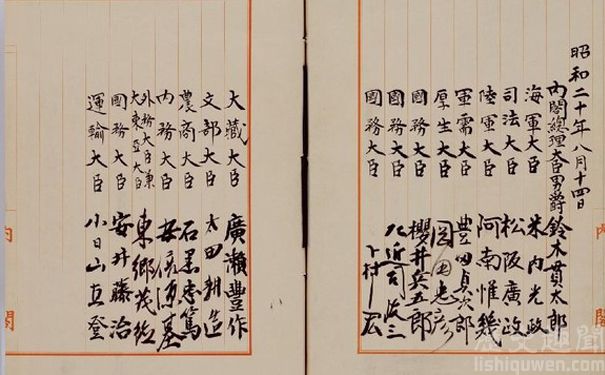 昭和二十年八月十四日
內閣總理大臣男爵鈴木貫太郎
海軍大臣 米內光政
司法大臣 松阪廣政
陸軍大臣 阿南惟幾
軍需大臣 豊田貞次郎
厚生大臣 岡田忠彥
國務大臣 櫻井兵五郎
國務大臣 左近司政三
國務大臣 下村宏
大藏大臣 廣瀨豐作
文部大臣 太田耕造
農商大臣 石黑忠篤
內務大臣 安倍源基
外務大臣兼
大東亞大臣 東鄉茂德
國務大臣 安井藤治
運輸大臣 小日山直登
內閣
內閣
歷史趣聞
lishiquwen.com